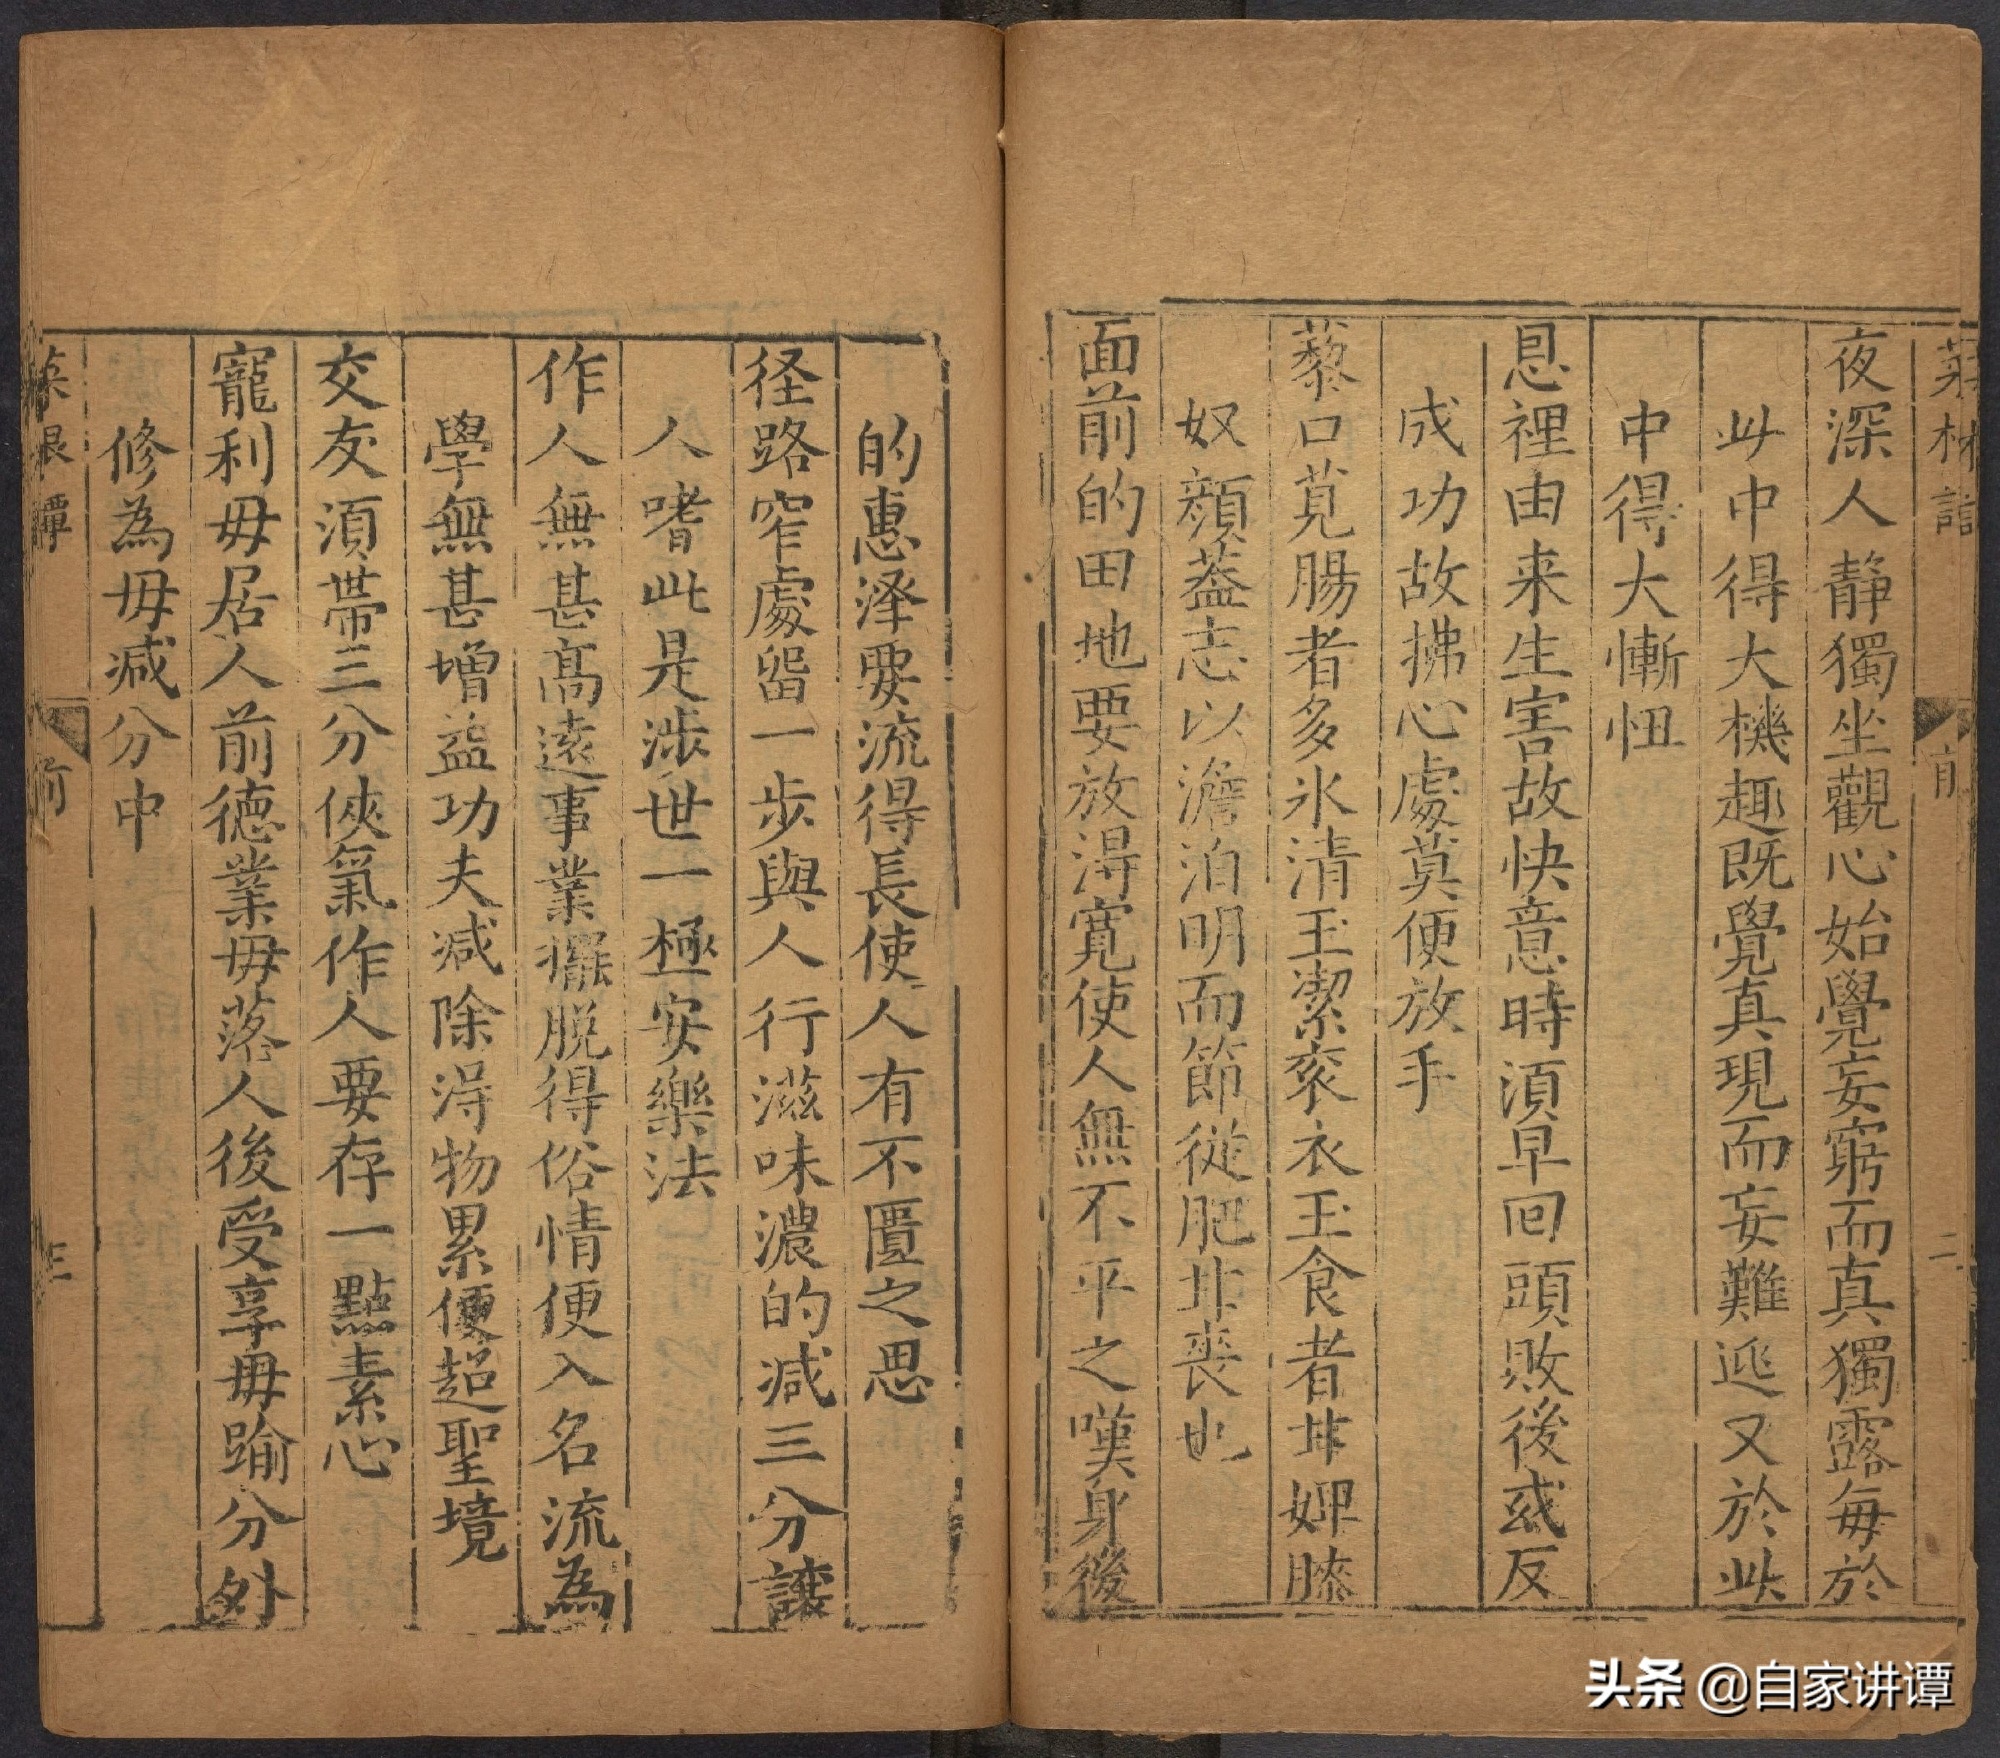 菜根譚 前 二
夜深人靜獨坐觀心始覺妄窮而真獨露每於
此中得大機趣既覺真現而妄難迯又於此
中得大慚忸
恩裡由来生害故快意時須早回頭敗後或反
成功故拂心處莫便放手
藜口莧腸者多氷清玉潔衮衣玉食者甘婢膝
奴顏蓋志以澹泊明而節從肥甘喪也
面前的田地要放得寬使人無不平之嘆身後
的惠澤要流得長使人有不匱之思
径路窄處留一步與人行滋味濃的減三分讓
人嗜此是渉世一極安樂法
作人無甚高遠事業擺脱得俗情便入名流為
學無甚增益功夫减除得物累便超聖境
交友須帯三分俠氣作人要存一點素心
寵利毋居人前德業毋落人後受享毋踰分外
修為毋减分中
菜根譚 前 三
头条 @自家讲谭